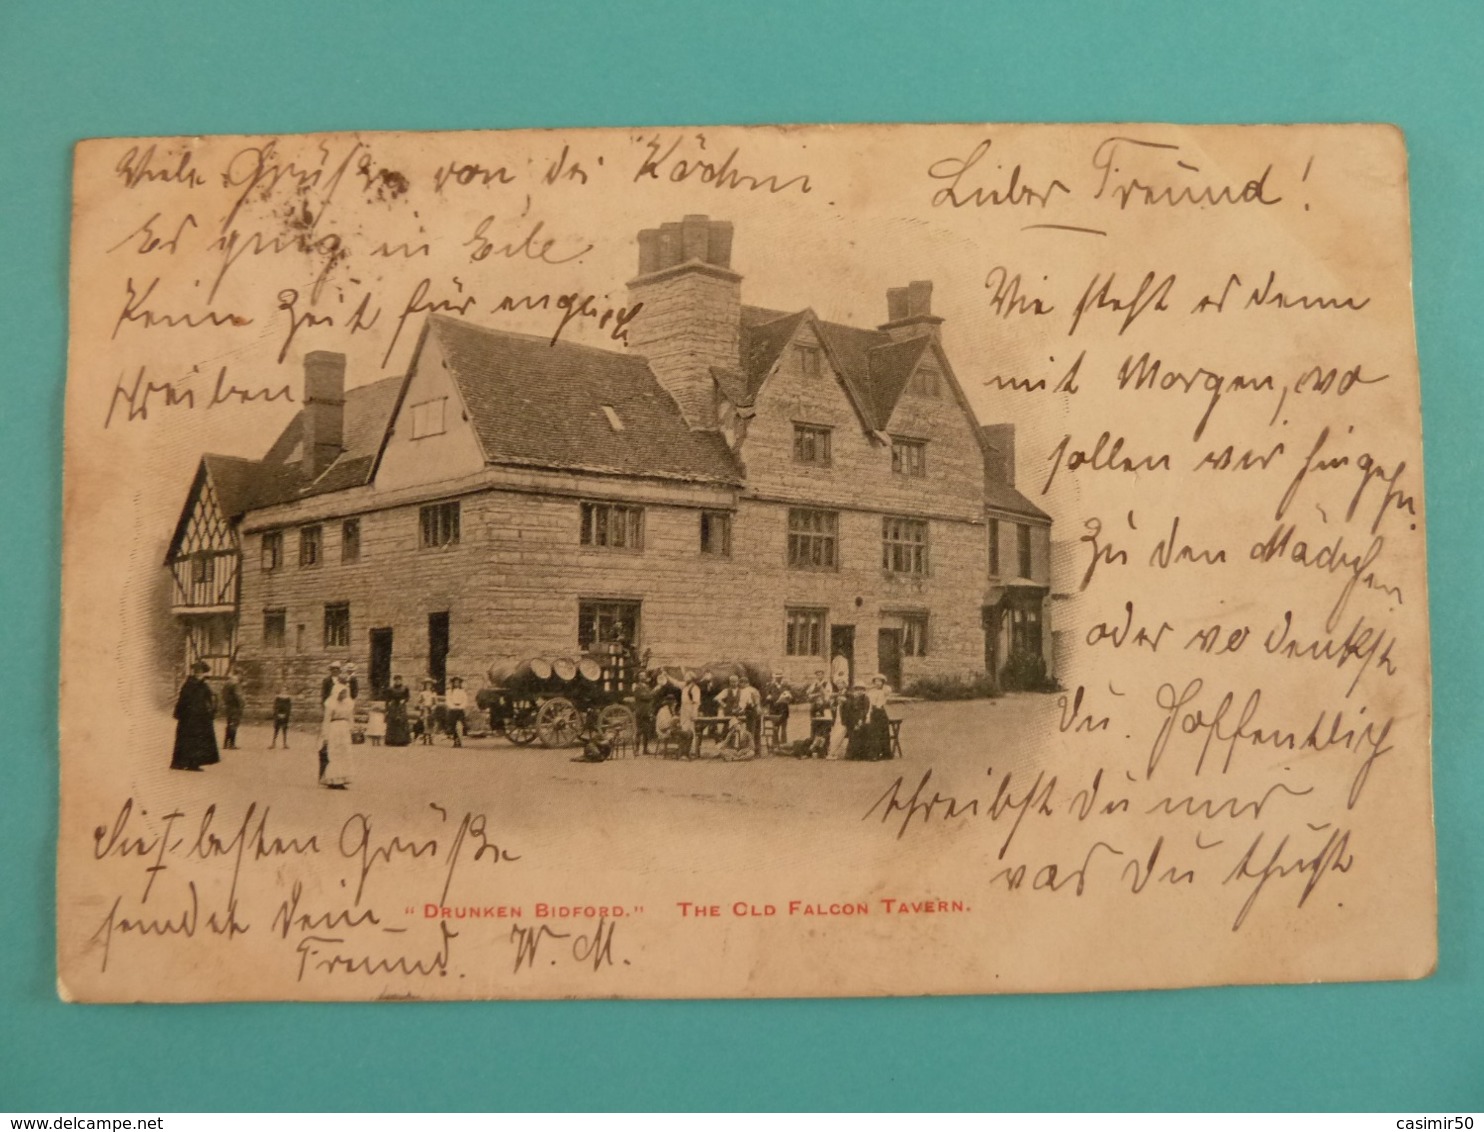 Lieber Freund!
Wie steht es denn
mit Morgen, wo
sollen wir hingehn
Zu den Mädchen
oder wo denkst
du. Hoffentlich
schreibst Du mir
was Du thust
Die besten Grüße
sendet Dein
Freund. W. M.
Viele Grüße von der Köchin.
Es ging in Eile.
Keine Zeit für englisch
schreiben
"DRUNKEN BIDFORD." THE OLD FALCON TAVERN.
delcampe.net
casimir50